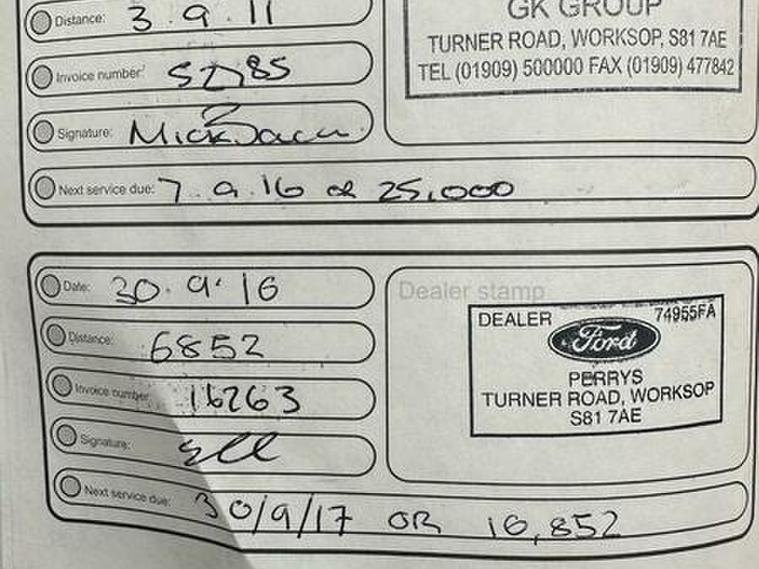 GK GROUP
Distance: 3.9.11
TURNER ROAD, WORKSOP, S81 7AE
TEL (01909) 500000 FAX (01909) 477842
Invoice number: 52785
Signature: Mick
Next service due: 7.9.16 OR 25,000
Date: 30.9.16
Dealer stamp
DEALER 74955FA
Ford
PERRYS
TURNER ROAD, WORKSOP
S81 7AE
Distance: 6852
Invoice number: 16263
Signature:
Next service due: 30/9/17 OR 16,852